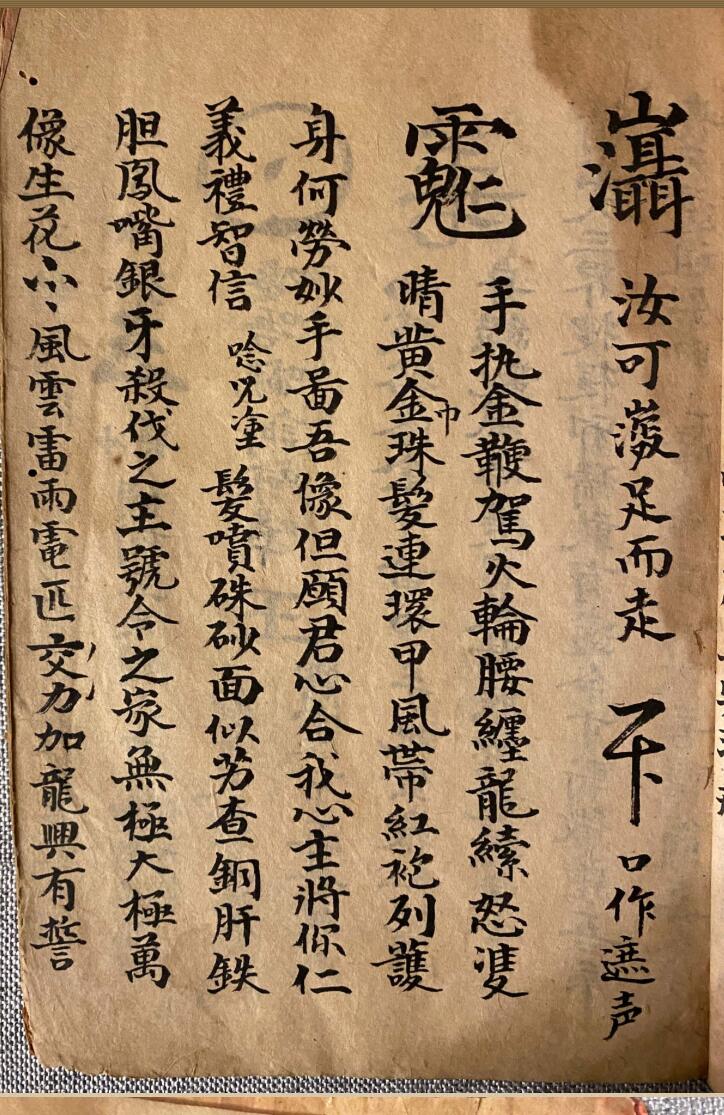 汝可𨄮足而走 口作遮声
手执金鞭驾火輪腰纏龍續怒𨾏
晴黄金珠髮連環甲風帶紅袍列護
巾
身何勞妙手畐吾像但願君心合我心主將你仁
義禮智信 唸咒塗 髮噴硃砂面似芳查銅肝鉄
胆鳳嘴銀牙殺伐之主號令之家無極大極萬
像生花 風雲雷雨電 交力加龍興有誓